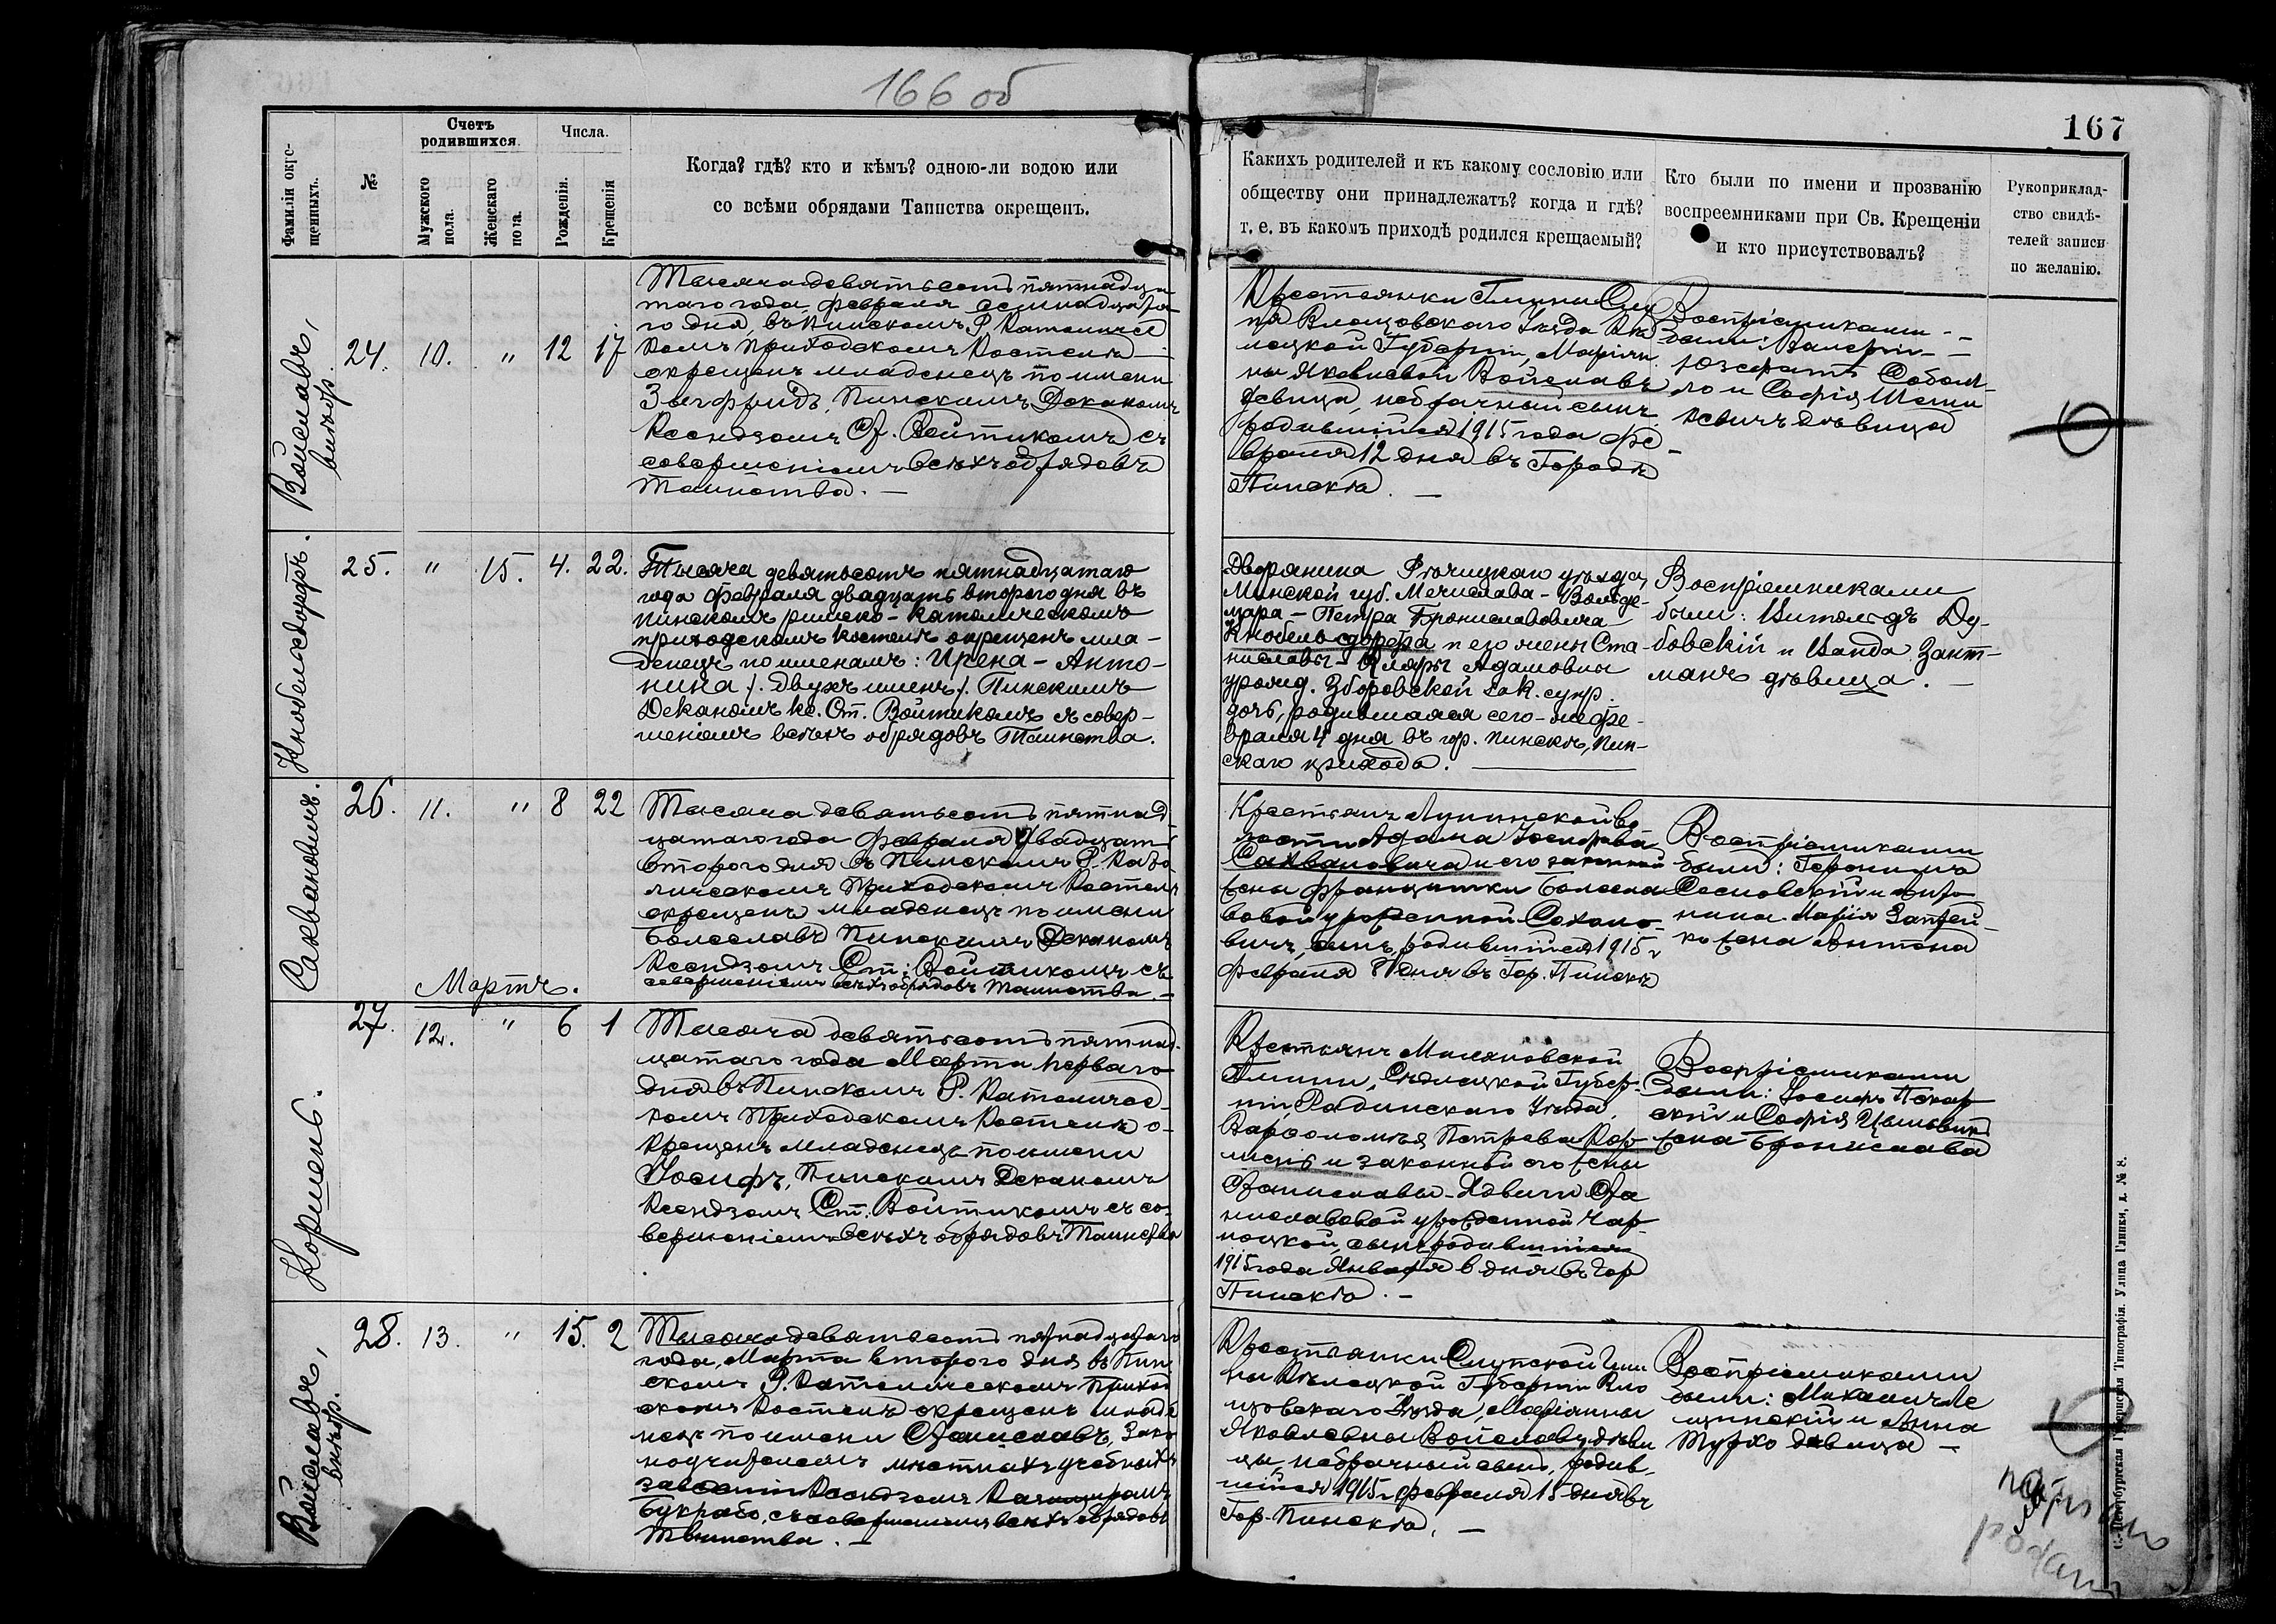 166 об
167
Фамиліи окре-
щенныхъ.
№
Счетъ
родившихся.
Мужского
пола.
Женскаго
пола.
Числа.
Рожденія.
Крещенія
Когда? гдѣ? кто и кѣмъ? одною-ли водою или
со всѣми обрядами Таинства окрещенъ.
Какихъ родителей и къ какому сословію или
обществу они принадлежатъ? когда и гдѣ?
т. е. въ какомъ приходѣ родился крещаемый?
Кто были по имени и прозванію
воспреемниками при Св. Крещеніи
и кто присутствовалъ?
Рукоприклад-
ство свидѣ-
телей записи
по желанію.
Войславъ,
внѣбр.
24. 10. " 12 17
Тысяча девятьсотъ пятнадца
таго года февраля семнадцата-
го дня, въ Пинскомъ Р. Католичес
комъ Приходскомъ Костелѣ
окрещенъ младенецъ по имени
Зыгфридъ, Пинскимъ Деканомъ
Ксендзомъ Ст. Войтикомъ съ
совершеніемъ всѣхъ обрядовъ
Таинства. —
Крестьянки Гмины
Влощовскаго Уѣзда Кѣ
лецкой Губерніи, Маріан
ны Яковлевой Войславъ
девица, небрачный сынъ
родившійся 1915 года фе-
враля 12 дня въ Городѣ
Пинскѣ. —
Воспріемниками
были: Валерій
Юзефатъ Собол-
ло и Софія
девица
Кнобельсдорфъ.
25. " 15. 4. 22.
Тысяча девятьсотъ пятнадцатаго
года февраля двадцать второго дня въ
пинскомъ римско-католическомъ
приходскомъ костелѣ окрещенъ мла-
денецъ по именамъ: Ирена-Анто-
нина /. двухъ именъ /. Пинскимъ
Деканомъ кс. Ст. Войтикомъ съ совер-
шеніемъ всѣхъ обрядовъ Таинства.
Дворянина Рѣчицкаго уѣзда,
Минской губ. Мечислава-Вольде-
мара-Петра Брониславовича
Кнобельсдорфа и его жены Ста-
ниславы-Кляры Адамовны
урожд. Зборовской зак. супр.
дочь, родившаяся сего-же фе-
враля 4 дня въ гор. Пинскѣ, Пин-
скаго прихода.
Воспріемниками
были: Витольдъ Ду-
бовскій и Ванда Зант-
манъ дѣвица. —
Сахвановичъ.
26. 11. " 8 22
Тысяча девятьсотъ пятнад
цатаго года февраля двадцать
второго дня въ Пинскомъ Р. Като
лическомъ Приходскомъ Костелѣ
окрещенъ младенецъ по имени
Болеславъ Пинскимъ Деканомъ
Ксендзомъ Ст: Войтикомъ съ
совершеніемъ всѣхъ обрядовъ Таинства. —
Крестьянъ Лунинской во
лости Адама Іосифова
Сахвановича и его законной
жены Францишки Болесла
вовой урожденной Сохано-
вичъ, сынъ, родившійся 1915 г
февраля 8 дня въ Гор. Пинскѣ
Воспріемниками
были: Геронимъ
Сосновскій и Анто
нина Марія
жена Антона
Мартъ.
Кормень.
27. 12. " 6 1
Тысяча девятьсотъ пятнад-
цатаго года Марта перваго
дня въ Пинскомъ Р. Католичес-
комъ Приходскомъ Костелѣ о-
крещенъ младенецъ по имени
Іосифъ, Пинскимъ Деканомъ
Ксендзомъ Ст. Войтикомъ съ со-
вершеніемъ всѣхъ обрядовъ Таинства
Крестьянъ Милановской
Гмины, Сѣдлецкой Губер-
ніи Радинскаго Уѣзда,
Варфоломѣя Петрова Кор-
мень и законной его жены
Станиславы-Ядвиги Ста
ниславовой урожденной Чар-
нецкой, сынъ, родившійся
1915 года Января 6 дня въ Гор
Пинскѣ. —
Воспріемниками
были: Іосифъ Пекар
скій и Софія
жена Бронислава
Войславъ,
внѣбр.
28. 13. " 15. 2
Тысяча девятьсотъ пятнадцатаго
года, Марта второго дня въ Пин
скомъ Р. Католическомъ Приход
скомъ Костелѣ окрещенъ младе
нецъ по имени Станиславъ, Зако
ноучителемъ мѣстныхъ учебныхъ
заведеній Ксендзомъ Казимиромъ
Букрабо, съ совершеніемъ всѣхъ обрядовъ
Таинства. —
Крестьянки Слупской Гми
ны Кѣлецкой Губерніи Вло
щовскаго Уѣзда, Маріанны
Яковлевны Войславъ дѣви
цы, небрачный сынъ, родив-
шійся 1915 г. февраля 15 дня въ
Гор. Пинскѣ. —
Воспріемниками
были: Михаилъ Ле
щинскій и Анна
Турко дѣвица —
С.-Петербургская Губернская Типографія. Улица Глинки, д. № 8.